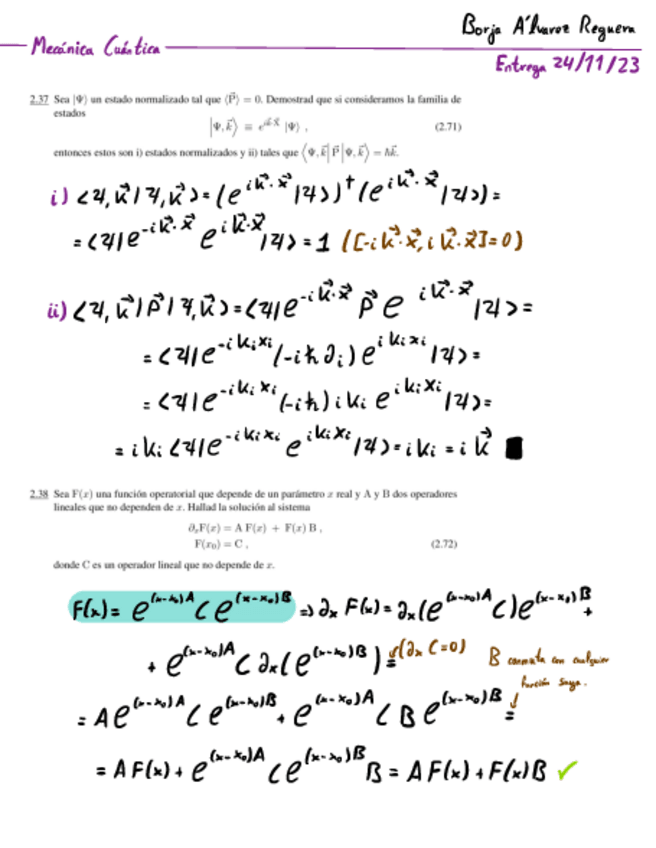 Borja Álvarez Reguera
Mecánica Cuántica
Entrega 24/11/23
2.37 Sea |Ψ⟩ un estado normalizado tal que ⟨P⃗⟩ = 0. Demostrad que si consideramos la familia de
estados
|Ψ, k⃗⟩ ≡ e^{ik⃗·X⃗} |Ψ⟩ , (2.71)
entonces estos son i) estados normalizados y ii) tales que ⟨Ψ, k⃗| P⃗ |Ψ, k⃗⟩ = ħk⃗.
i) ⟨Ψ, k⃗ | Ψ, k⃗⟩ = (e^{i k⃗·x⃗} |Ψ⟩)† (e^{i k⃗·x⃗} |Ψ⟩) =
= ⟨Ψ| e^{-i k⃗·x⃗} e^{i k⃗·x⃗} |Ψ⟩ = 1 ([-i k⃗·x⃗, i k⃗·x⃗] = 0)
ii) ⟨Ψ, k⃗ | P⃗ | Ψ, k⃗⟩ = ⟨Ψ| e^{-i k⃗·x⃗} P⃗ e^{i k⃗·x⃗} |Ψ⟩ =
= ⟨Ψ| e^{-i k_i x_i} (-i ħ ∂_i) e^{i k_i x_i} |Ψ⟩ =
= ⟨Ψ| e^{-i k_i x_i} (-i ħ) i k_i e^{i k_i x_i} |Ψ⟩ =
= i k_i ⟨Ψ| e^{-i k_i x_i} e^{i k_i x_i} |Ψ⟩ = i k_i = i k⃗ ■
2.38 Sea F(x) una función operatorial que depende de un parámetro x real y A y B dos operadores
lineales que no dependen de x. Hallad la solución al sistema
∂ₓF(x) = A F(x) + F(x) B ,
F(x₀) = C , (2.72)
donde C es un operador lineal que no depende de x.
F(x) = e^{(x-x₀)A} C e^{(x-x₀)B} ⇒ ∂ₓ F(x) = ∂ₓ(e^{(x-x₀)A} C) e^{(x-x₀)B} +
+ e^{(x-x₀)A} C ∂ₓ(e^{(x-x₀)B}) = (∂ₓ C = 0) B conmuta con cualquier
función suya.
= A e^{(x-x₀)A} C e^{(x-x₀)B} + e^{(x-x₀)A} C B e^{(x-x₀)B} =
= A F(x) + e^{(x-x₀)A} C e^{(x-x₀)B} B = A F(x) + F(x) B ✓